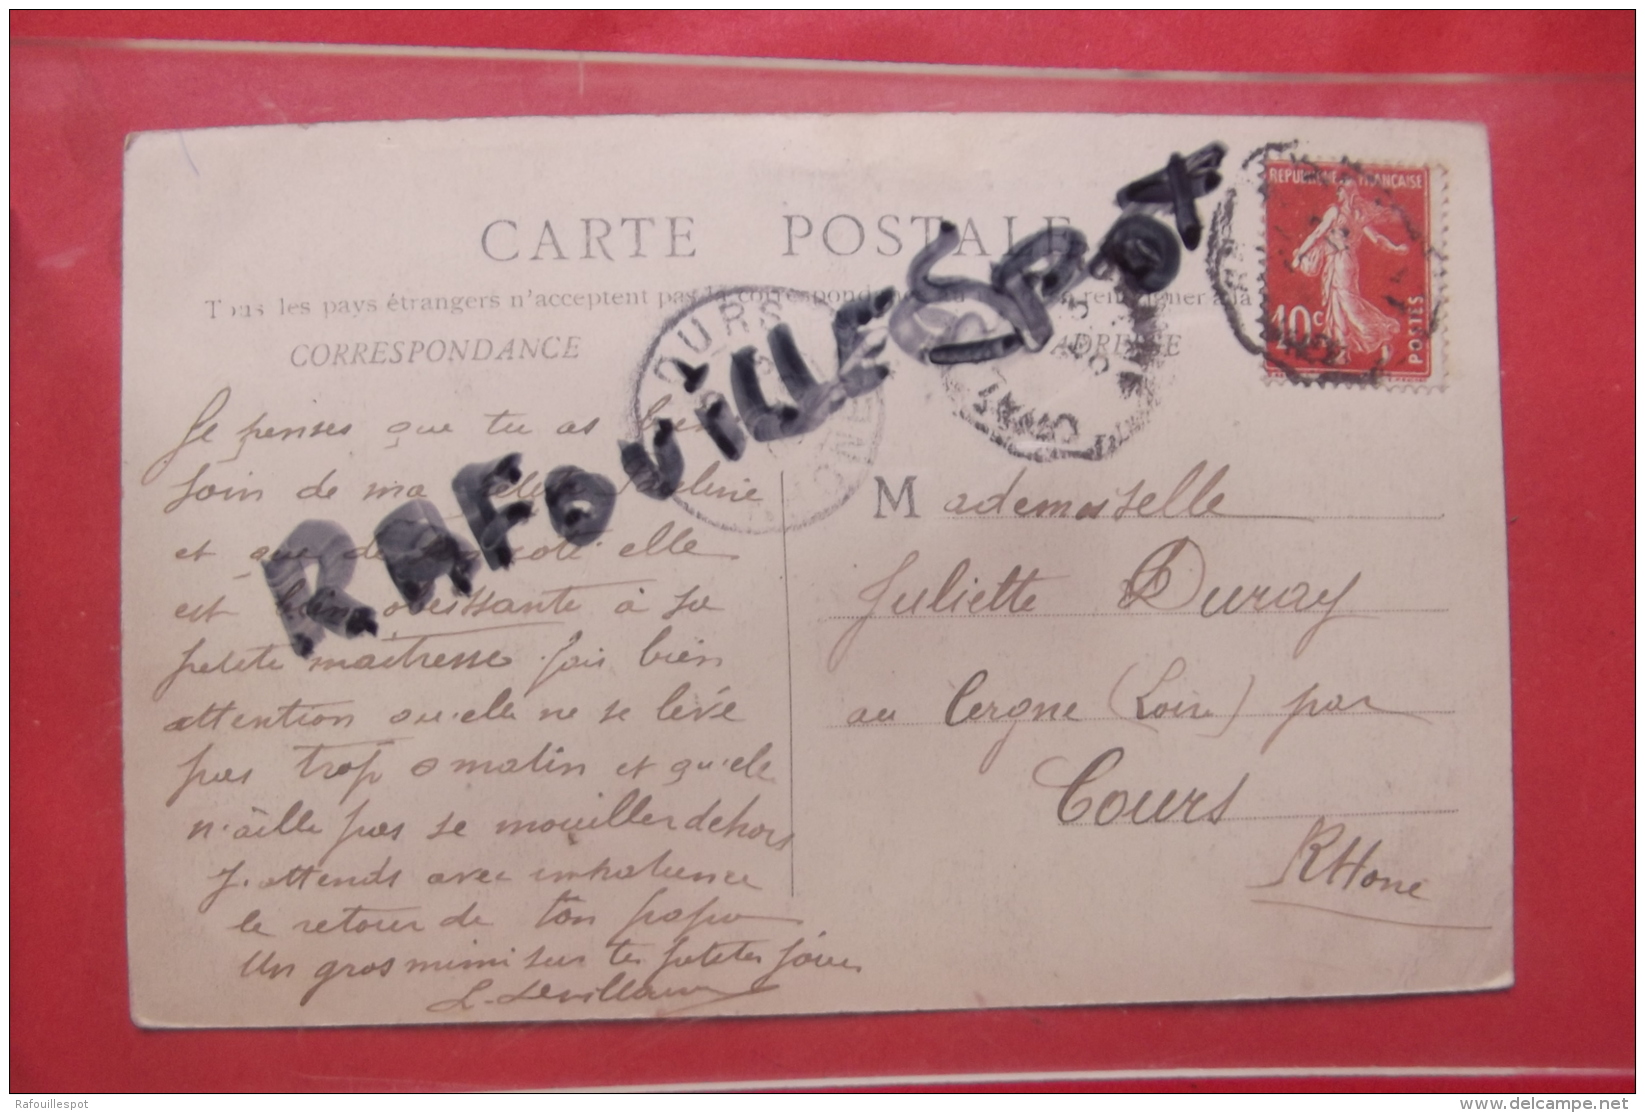 CARTE POSTALE
Tous les pays étrangers n'acceptent pas la correspondance au à la
CORRESPONDANCE
ADRESSE
RAFOUILLESPOT
COURS
REPUBLIQUE FRANÇAISE
10c
POSTES
Je penses que tu as bien
soin de ma Pauline
et que de coté elle
est bien obeissante à sa
petite maitresse fais bien
attention qu'elle ne se lève
pas trop matin et qu'elle
n'aille pas se mouiller dehors
J'attends avec impatience
le retour de ton papa
Un gros mimi sur tes petites joues
Mademoiselle
Juliette Duray
au Cergne (Loire) par
Cours
RHone
Rafouillespot
www.delcampe.net